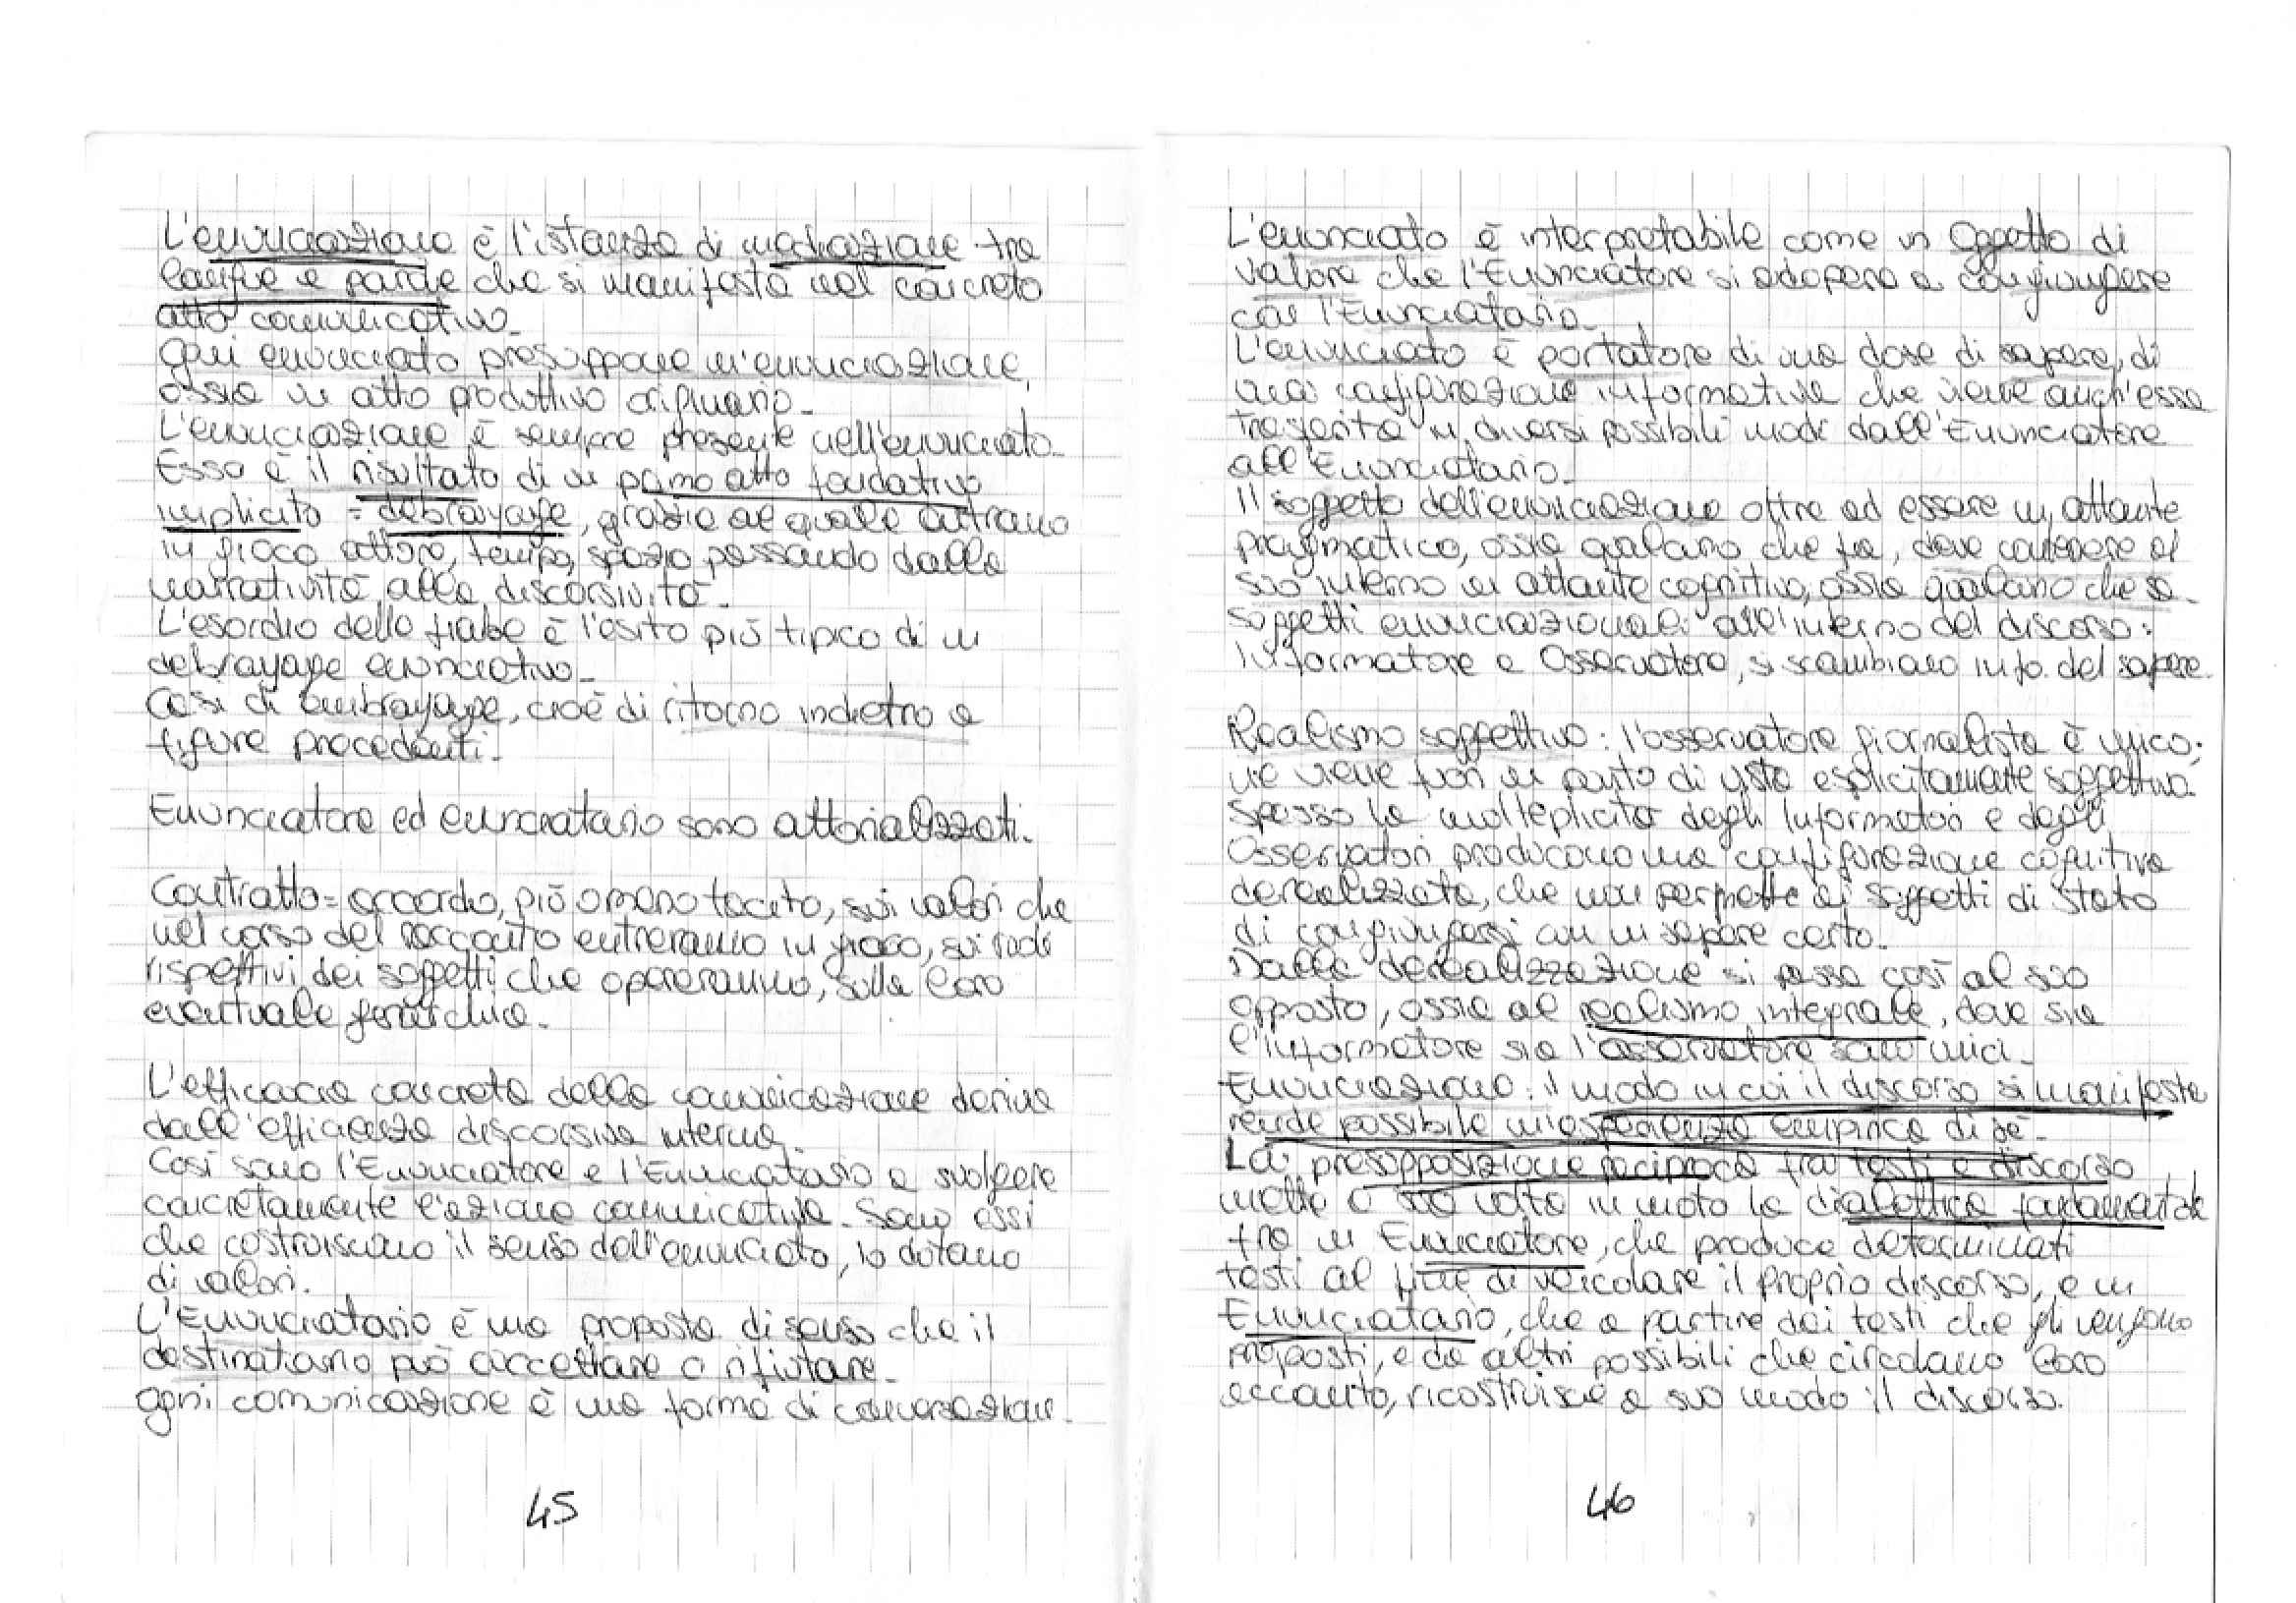 L'enunciazione è l'istanza di mediazione tra
langue e parole che si manifesta nel concreto
atto comunicativo.
Ogni enunciato presuppone un'enunciazione,
ossia un atto produttivo originario.
L'enunciazione è sempre presente nell'enunciato.
Esso è il risultato di un primo atto fondativo
implicito = debrayage, grazie al quale entrano
in gioco attore, tempo, spazio passando dalla
narratività alla discorsività.
L'esordio delle fiabe è l'esito più tipico di un
debrayage enunciativo.
Casi di embrayage, cioè di ritorno indietro a
figure precedenti.
Enunciatore ed enunciatario sono attorializzati.
Contratto = accordo, più o meno tacito, sui valori che
nel corso del racconto entreranno in gioco, sui ruoli
rispettivi dei soggetti che opereranno, sulla loro
eventuale gerarchia.
L'efficacia concreta della comunicazione deriva
dall'efficienza discorsiva interna.
Così sono l'Enunciatore e l'Enunciatario a svolgere
concretamente l'azione comunicativa. Sono essi
che costruiscono il senso dell'enunciato, lo dotano
di valori.
L'Enunciatario è una proposta di senso che il
destinatario può accettare o rifiutare.
Ogni comunicazione è una forma di conversazione.
45
L'enunciato è interpretabile come un Oggetto di
valore che l'Enunciatore si adopera a congiungere
con l'Enunciatario.
L'enunciato è portatore di una dose di sapere, di
una configurazione informativa che viene anch'essa
trasferita in diversi possibili modi dall'Enunciatore
all'Enunciatario.
Il soggetto dell'enunciazione oltre ad essere un attante
pragmatico, ossia qualcuno che fa, deve contenere al
suo interno un attante cognitivo, ossia qualcuno che sa.
Soggetti enunciazionali all'interno del discorso:
Informatore e Osservatore, si scambiano info. del sapere.
Realismo soggettivo: l'osservatore giornalista è unico;
ne viene fuori un punto di vista esplicitamente soggettivo.
Spesso la molteplicità degli Informatori e degli
Osservatori producono una configurazione cognitiva
derealizzata, che non permette ai soggetti di Stato
di congiungersi con un sapere certo.
Dalla derealizzazione si passa così al suo
opposto, ossia al realismo integrale, dove sia
l'informatore sia l'osservatore sono unici.
Enunciazione: il modo in cui il discorso si manifesta
rende possibile un'esperienza empirica di sé.
La presupposizione reciproca fra testi e discorso
mette a sua volta in moto la dialettica fondamentale
tra un Enunciatore, che produce determinati
testi al fine di veicolare il proprio discorso, e un
Enunciatario, che a partire dai testi che gli vengono
proposti, e da altri possibili che circolano loro
accanto, ricostruisce a suo modo il discorso.
46